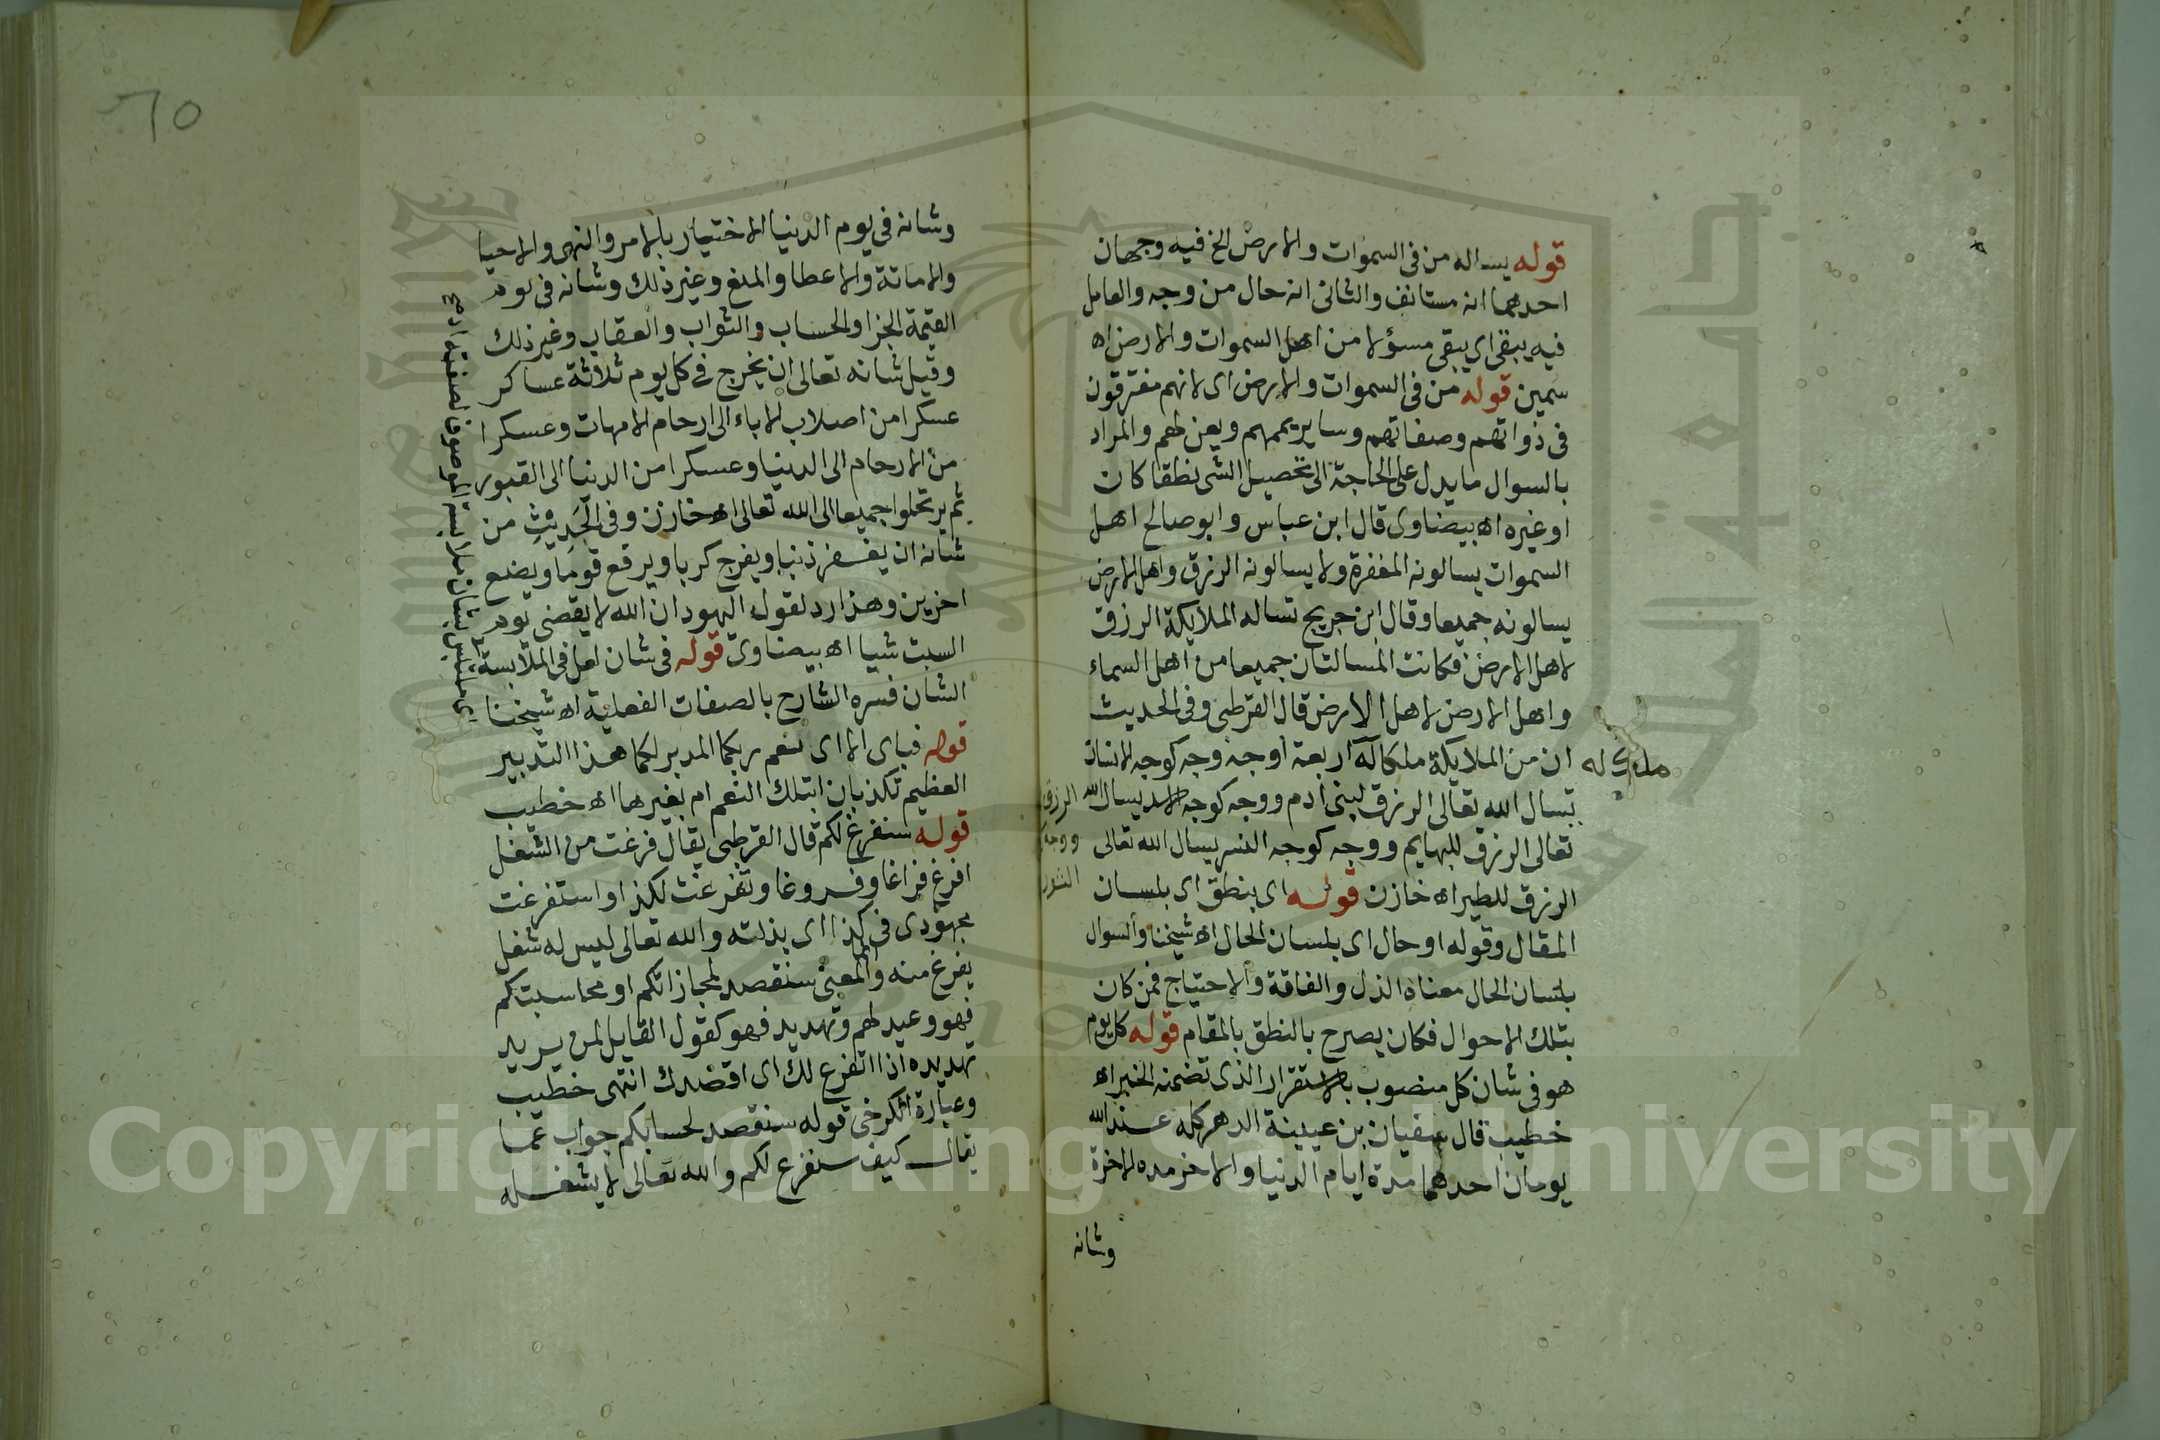 قوله يساله من فى السموات والارض الخ فيه وجهان
احدهما انه مستانف والثانى انه حال من وجه والعامل
فيه يبقى اى يبقى مسؤلا من اهل السموات والارض اه
سمين قوله من فى السموات والارض اى لانهم مفترقون
فى ذواتهم وصفاتهم وساير يهمهم ويعن لهم والمراد
بالسوال ما يدل على الحاجة الى تحصيل الشى نطقا كان
او غيره اه بيضاوى قال ابن عباس وابو صالح اهل
السموات يسالونه المغفرة ولا يسالونه الرزق واهل الارض
يسالونه جميعا وقال ابن جريج تساله الملايكة الرزق
لاهل الارض فكانت المسالتان جميعا من اهل السماء
واهل الارض لاهل الارض قال القرطبى وفى الحديث
ان من الملايكة ملكا له اربعة اوجه وجه كوجه الانسان
يسال الله تعالى الرزق لبنى ادم ووجه كوجه الاسد يسال الله
تعالى الرزق للبهايم ووجه كوجه النسر يسال الله تعالى
الرزق للطير اه خازن قوله اى بنطق اى بلسان
المقال وقوله او حال اى بلسان الحال اه شيخنا والسوال
بلسان الحال معناه الذل والفاقة والاحتياج فمن كان
بتلك الاحوال فكان يصرح بالنطق بالمقام قوله كل يوم
هو فى شان كل منصوب بالاستقرار الذى تضمنه الخبر اه
خطيب قال سفيان بن عيينة الدهر كله عند الله
يومان احدهما مدة ايام الدنيا والاخر مده الاخرة
وشانه
ملك له
الرزق
ووجه
الثور
٦٥
وشانه فى يوم الدنيا الاختيار بالامر والنهى والاحيا
والاماتة والاعطا والمنع وغير ذلك وشانه فى يوم
القيمة الجزا والحساب والثواب والعقاب وغير ذلك
وقيل شانه تعالى ان يخرج فى كل يوم ثلاثة عساكر
عسكرا من اصلاب الاباء الى ارحام الامهات وعسكرا
من الارحام الى الدنيا وعسكرا من الدنيا الى القبور
ثم يرتحلوا جميعا الى الله تعالى اه خازن وفى الحديث من
شانه ان يغفر ذنبا ويفرج كربا ويرفع قوما ويضع
اخرين وهذا رد لقول اليهود ان الله لا يقضى يوم
السبت شيا اه بيضاوى قوله فى شان لعل فى الملابسة
الشان فسره الشارح بالصفات الفعلية اه شيخنا
قوله فباى الاء اى نعم ربكما المدبر لكما هذا التدبير
العظيم تكذبان ابتلك النعم ام بغيرها اه خطيب
قوله سنفرغ لكم قال القرطبى يقال فرغت من الشغل
افرغ فراغا وفروغا وتفرغت لكذا واستفرغت
مجهودى فى كذا اى بذلته والله تعالى ليس له شغل
يفرغ منه والمعنى سنقصد لمجازاتكم او محاسبتكم
فهو وعيد لهم وتهديد فهو كقول القايل لمن يريد
تهديده اذا اتفرغ لك اى اقصدك انتهى خطيب
وعبارة الكرخى قوله سنقصد لحسابكم جواب عما
يقال كيف سنفرغ لكم والله تعالى لا يشغله
اى ملتبس بشان ملابسة الموصوف لصفته اه
Copyright © King Saud University
جامعة الملك سعود